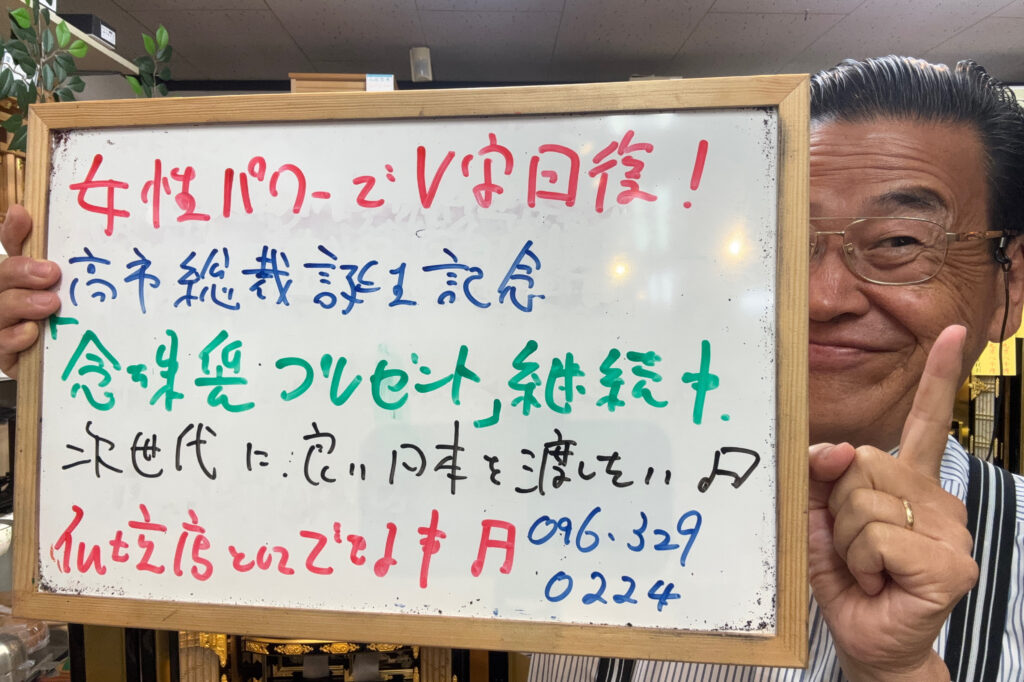 女性パワーでV字回復!
高市総裁誕生記念
「念珠袋プレゼント」継続中.
次世代に良い日本を渡したい
仏
096.329
0224